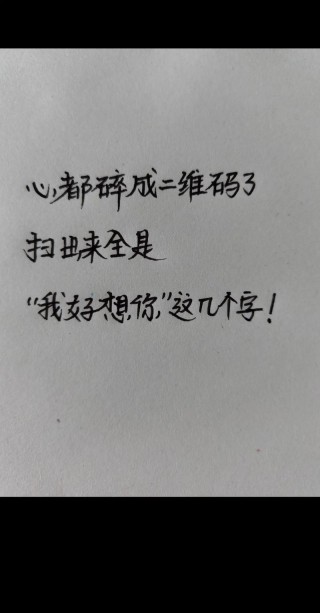 心都碎成二维码了
扫出来全是
“我好想你,”这几个字！